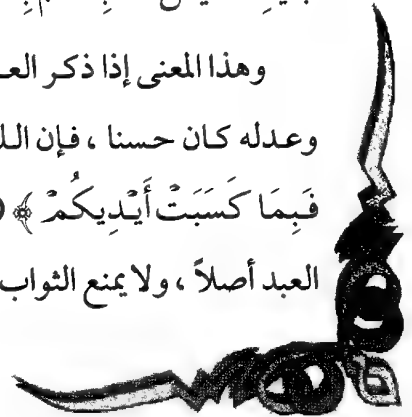 وهذا المعنى إذا ذكر
وعدله كان حسنا ، فإن
فَبِمَا كَسَبَتْ أَيْدِيكُمْ ﴾ (
العبد أصلاً ، ولا يمنع الثواب